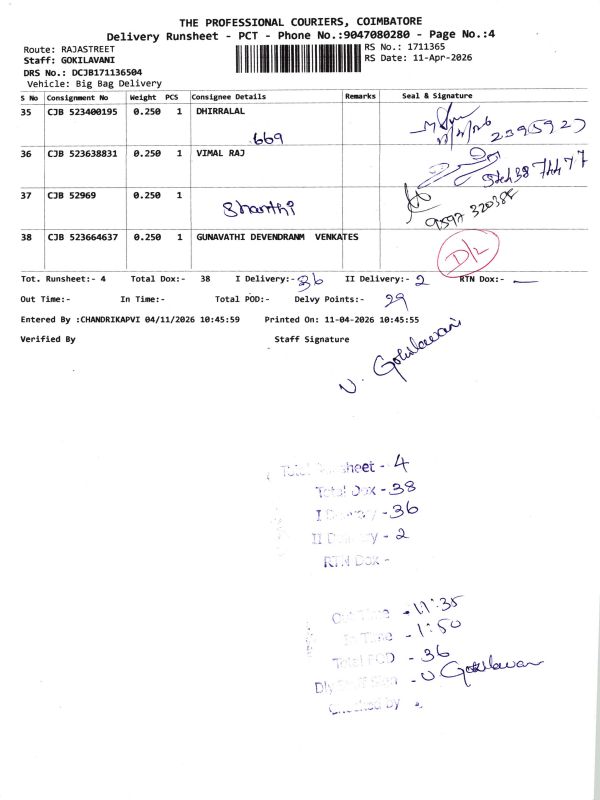 THE PROFESSIONAL COURIERS, COIMBATORE
Delivery Runsheet - PCT - Phone No.:9047080280 - Page No.:4
Route: RAJASTREET
RS No.: 1711365
Staff: GOKILAVANI
RS Date: 11-Apr-2026
DRS No.: DCJB171136504
Vehicle: Big Bag Delivery
S No Consignment No Weight PCS Consignee Details Remarks Seal & Signature
35 CJB 523400195 0.250 1 DHIRRALAL
669
2395927
36 CJB 523638831 0.250 1 VIMAL RAJ
37 CJB 52969 0.250 1
Shanthi
38 CJB 523664637 0.250 1 GUNAVATHI DEVENDRANM VENKATES
D/2
Tot. Runsheet:- 4 Total Dox:- 38 I Delivery:- 36 II Delivery:- 2 RTN Dox:- —
Out Time:- In Time:- Total POD:- Delvy Points:- 29
Entered By :CHANDRIKAPVI 04/11/2026 10:45:59 Printed On: 11-04-2026 10:45:55
Verified By Staff Signature
V. Gokilavani
Total Runsheet - 4
Total Dox - 38
I Delivery - 36
II Delivery - 2
RTN Dox -
Out Time - 11:35
In Time - 1:50
Total POD - 36
Dly Staff Sign - V Gokilavani
Checked by